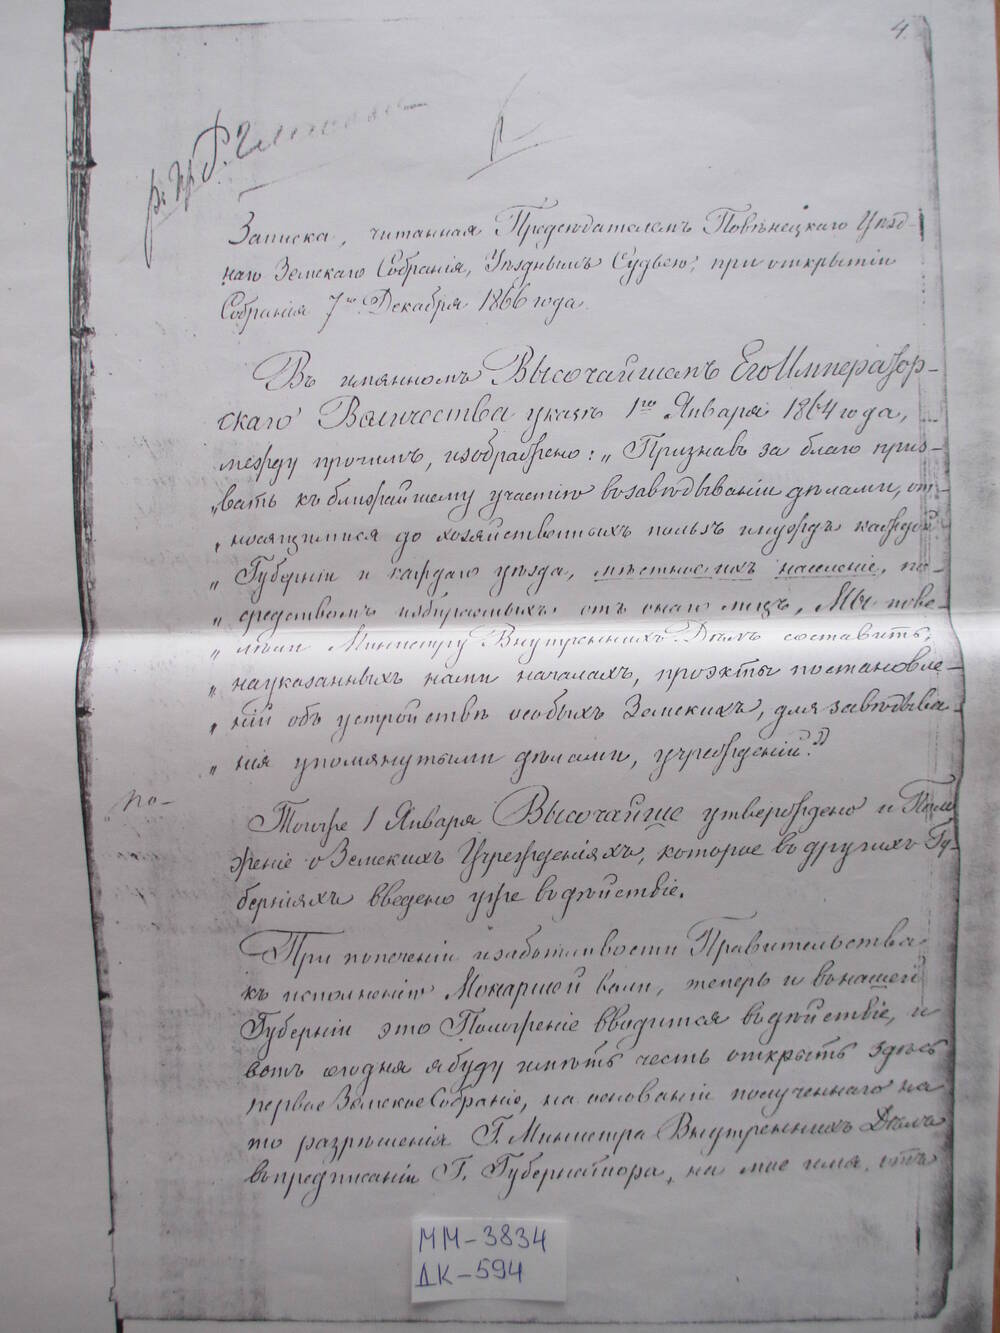 4
Записка, читанная Председателемъ Повѣнецкаго Уѣзд-
наго Земскаго Собранія, Уѣзднымъ Судьею, при открытіи
Собранія 7го Декабря 1866 года.
Въ имянномъ Высочайшемъ Его Император-
скаго Величества указѣ 1го Января 1864 года,
между прочимъ, изображено: „Признавъ за благо приз-
„вать къ ближайшему участію в завѣдываніи дѣлами, от-
„носящимися до хозяйственныхъ пользъ и нуждъ каждой
„Губерніи и каждаго уѣзда, мѣстное ихъ населеніе, по-
„средствомъ избираемыхъ отъ онаго лицъ, Мы пове-
„лѣли Министру Внутреннихъ Дѣлъ составить,
„на указанныхъ нами началахъ, проэкты постановле-
„ній объ устройствѣ особыхъ Земскихъ, для завѣдыва-
„нія упомянутыми дѣлами, учрежденій."
по-
Того же 1 Января Высочайше утверждено и Поло
женіе о Земскихъ Учрежденіяхъ, которое в другихъ Гу-
берніяхъ введено уже в дѣйствіе.
При попеченіи и заботливости Правительства
къ исполненію Монаршей воли, теперь и в нашей
Губерніи это Положеніе вводится в дѣйствіе, и
вотъ сегодня я буду имѣть честь открыть здѣсь
первое Земское Собраніе, на основаніи полученнаго на
то разрѣшенія Г. Министра Внутреннихъ Дѣлъ
в предписаніи Г. Губернатора, на мое имя, отъ
ММ-3834
ДК-594